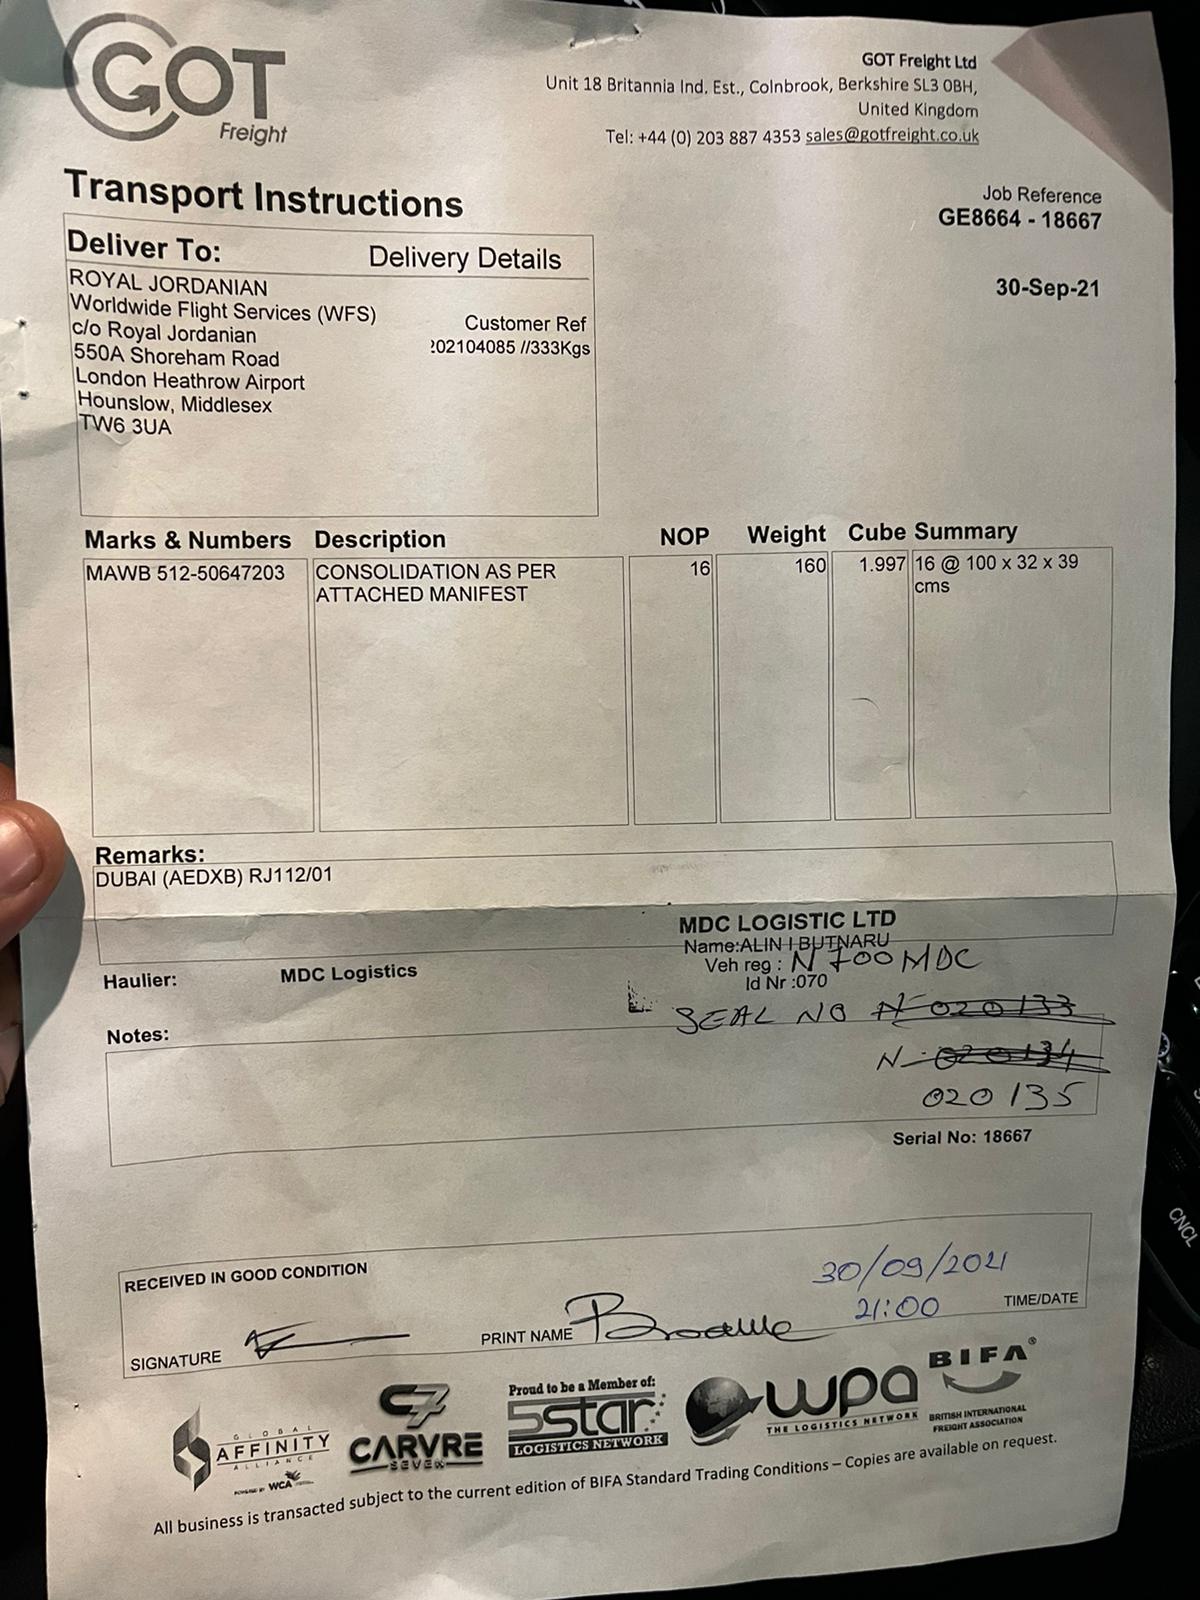 GOT
Freight
GOT Freight Ltd
Unit 18 Britannia Ind. Est., Colnbrook, Berkshire SL3 0BH,
United Kingdom
Tel: +44 (0) 203 887 4353 sales@gotfreight.co.uk
Transport Instructions
Job Reference
GE8664 - 18667
30-Sep-21
Deliver To: Delivery Details
ROYAL JORDANIAN
Worldwide Flight Services (WFS)
c/o Royal Jordanian
550A Shoreham Road
London Heathrow Airport
Hounslow, Middlesex
TW6 3UA
Customer Ref
202104085 //333Kgs
Marks & Numbers Description NOP Weight Cube Summary
MAWB 512-50647203 CONSOLIDATION AS PER 16 160 1.997 16 @ 100 x 32 x 39
ATTACHED MANIFEST cms
Remarks:
DUBAI (AEDXB) RJ112/01
MDC LOGISTIC LTD
Name:ALIN I BUTNARU
Veh reg : N700MDC
Id Nr :070
Haulier: MDC Logistics
SEAL NO N 020133
N 020134
020135
Notes:
Serial No: 18667
RECEIVED IN GOOD CONDITION
30/09/2021
21:00 TIME/DATE
SIGNATURE PRINT NAME
GLOBAL
AFFINITY
ALLIANCE
POWERED BY WCA
C7
CARVRE
SEVEN
Proud to be a Member of:
5star
LOGISTICS NETWORK
wpa
THE LOGISTICS NETWORK
BIFA®
BRITISH INTERNATIONAL
FREIGHT ASSOCIATION
All business is transacted subject to the current edition of BIFA Standard Trading Conditions – Copies are available on request.
CNCL